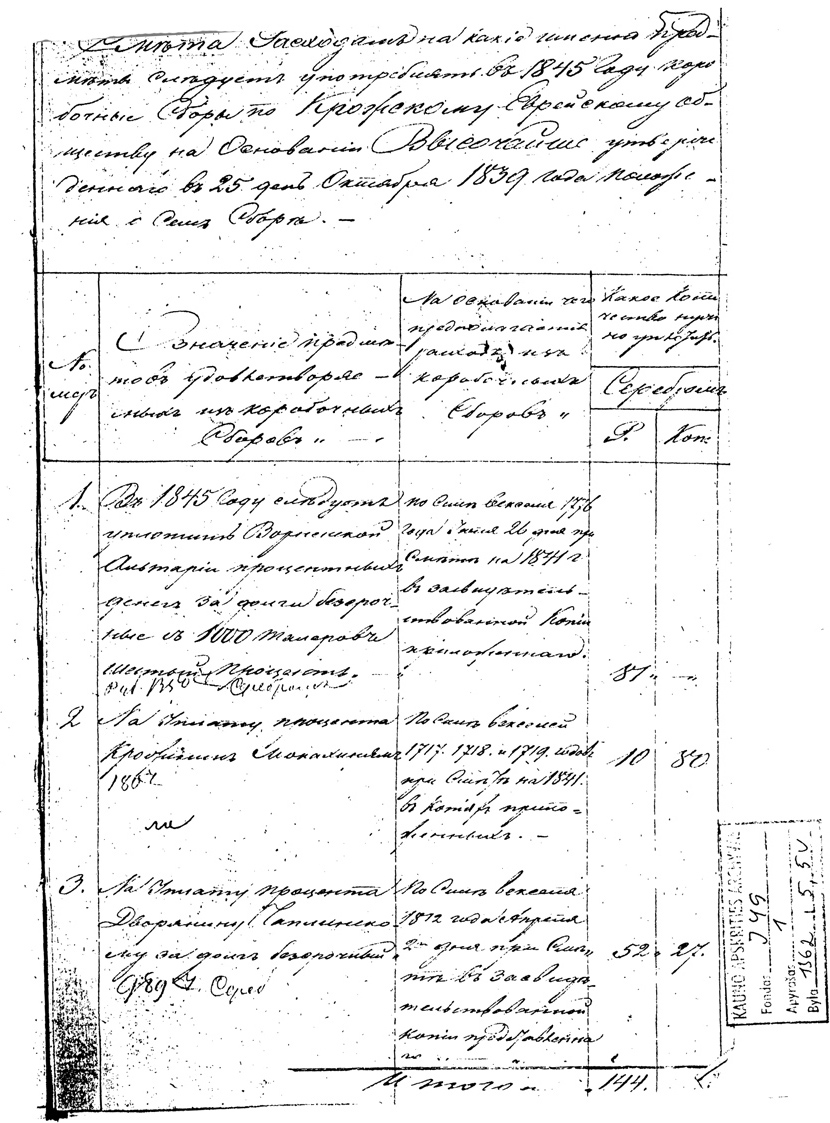 Смѣта Расходамъ на какіе именно пред-
мѣты слѣдуетъ употреблять въ 1845 Году коро
бочные Сборы по Крожскому Еврейскому об-
ществу на Основаніи Высочайше утверж
деннаго въ 25 день Октября 1839 года положе-
нія о семъ Сборѣ. —
№
Означеніе предме-
товъ удовлетворяе-
мыхъ изъ коробочныхъ
Сборовъ „ —
На основаніи чего
предполагается
расходъ изъ
коробочныхъ
Сборовъ „
Какое Коли
чество нуж
но
Серебромъ
Р. Коп.
1. Въ 1845 Году слѣдуетъ
уплотить Ворненской
Альтаріи процентныхъ
денегъ за долги безсроч-
ные съ 1000 талеровъ
шестый процентъ. —
Серебромъ
по Силѣ векселя 1776
года Іюля 26 дня при
Смѣтѣ на 1841 г
въ засвидѣтель-
ствованной Копіи
приложеннаго.
81 „ — „
2 На Уплату процента
Крожскимъ Монахинямъ
180 ч
По Силѣ векселей
1717. 1718. и 1719. годовъ
при Смѣтѣ на 1841.
въ копіяхъ прило-
женныхъ. —
10 80
3. На Уплату процента
Дворянину Чаплинско-
му за долгъ безсрочный
Сереб
По Силѣ векселя
1812 года Апреля
2 дня при Смѣ-
тѣ въ засвидѣ-
тельствованной
копіи представленна
го
52 „ 27.
Итого „ 144. 7.
KAUNO APSKRITIES ARCHYVAS
Fondas J49
Apyrašas 1
Byla 1362 L 5, 5v